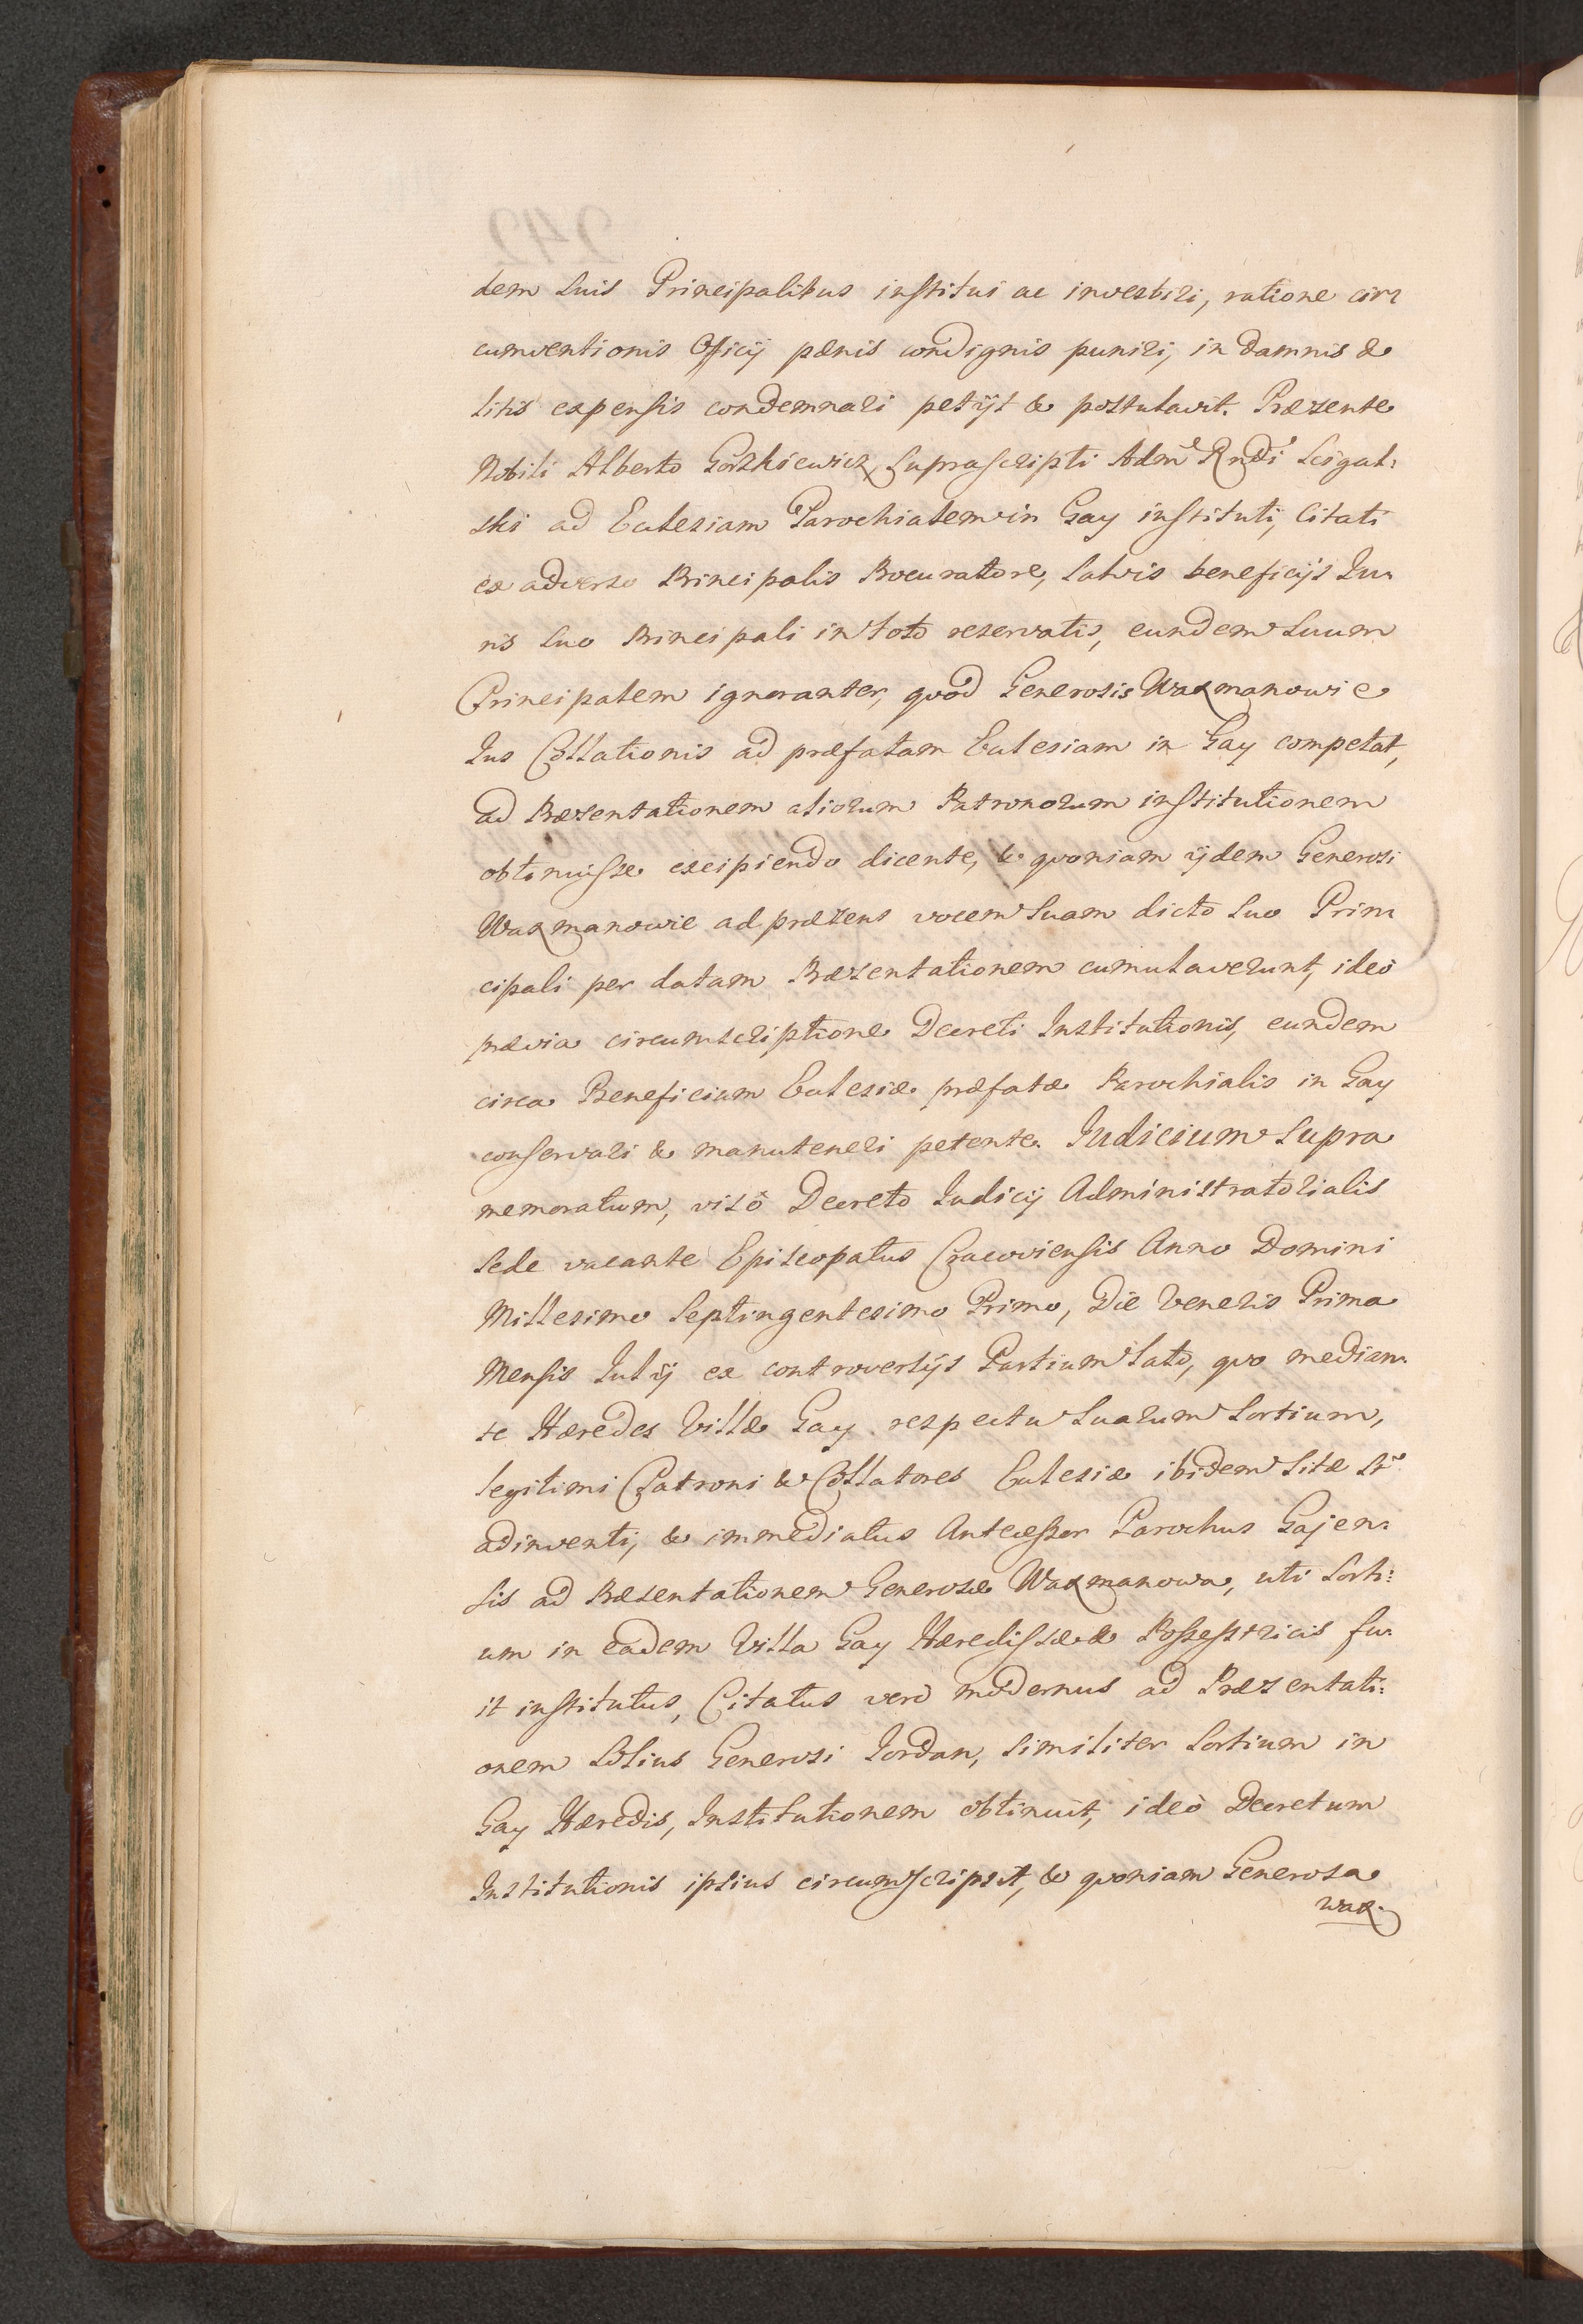 dem suis Principalibus institui ac investiri, ratione cir:
cumventionis Officij pœnis condignis puniri, in damnis &
litis expensis condemnari petijt & postulavit. Præsente
Nobili Alberto Gorzkiewicz suprascripti Adm Rndi Scigal:
ski ad Ecclesiam Parochialem in Gay instituti, Citati
ex adverso Principalis Procuratore, salvis beneficijs Iu:
ris suo Principali in toto reservatis, eundem suum
Principalem ignoranter, quod Generosis Waxmanowie
Ius Collationis ad præfatam Ecclesiam in Gay competat,
ad Præsentationem aliorum Patronorum institutionem
obtinuisse excipiendo dicente, & quoniam ijdem Generosi
Waxmanowie ad præsens vocem suam dicto suo Prin:
cipali per datam Præsentationem cumulaverunt, ideò
prævia circumscriptione Decreti Institutionis, eundem
circa Beneficium Ecclesiæ præfatæ Parochialis in Gay
conservari & manuteneri petente. Iudicium supra
memoratum, visô Decreto Iudicij Administratorialis
Sede vacante Episcopatus Cracoviensis Anno Domini
Millesimo Septingentesimo Primo, Die Veneris Prima
Mensis Iulij ex controversijs Partium lato, quo median:
te Hæredes Villæ Gay respectu suarum sortium,
legitimi Patroni & Collatores Ecclesiæ ibidem sitæ st
adinventi, & immediatus Antecessor Parochus Gajen:
sis ad Præsentationem Generosæ Waxmanowa, uti Sorti:
um in eadem Villa Gay Hæredissæ & Possestricis fu:
it institutus, Citatus verò modernus ad Præsentati:
onem solius Generosi Iordan, similiter sortium in
Gay Hæredis, Institutionem obtinuit, ideò Decretum
Institutionis ipsius circumscripsit, & quoniam Generosa
Wax: